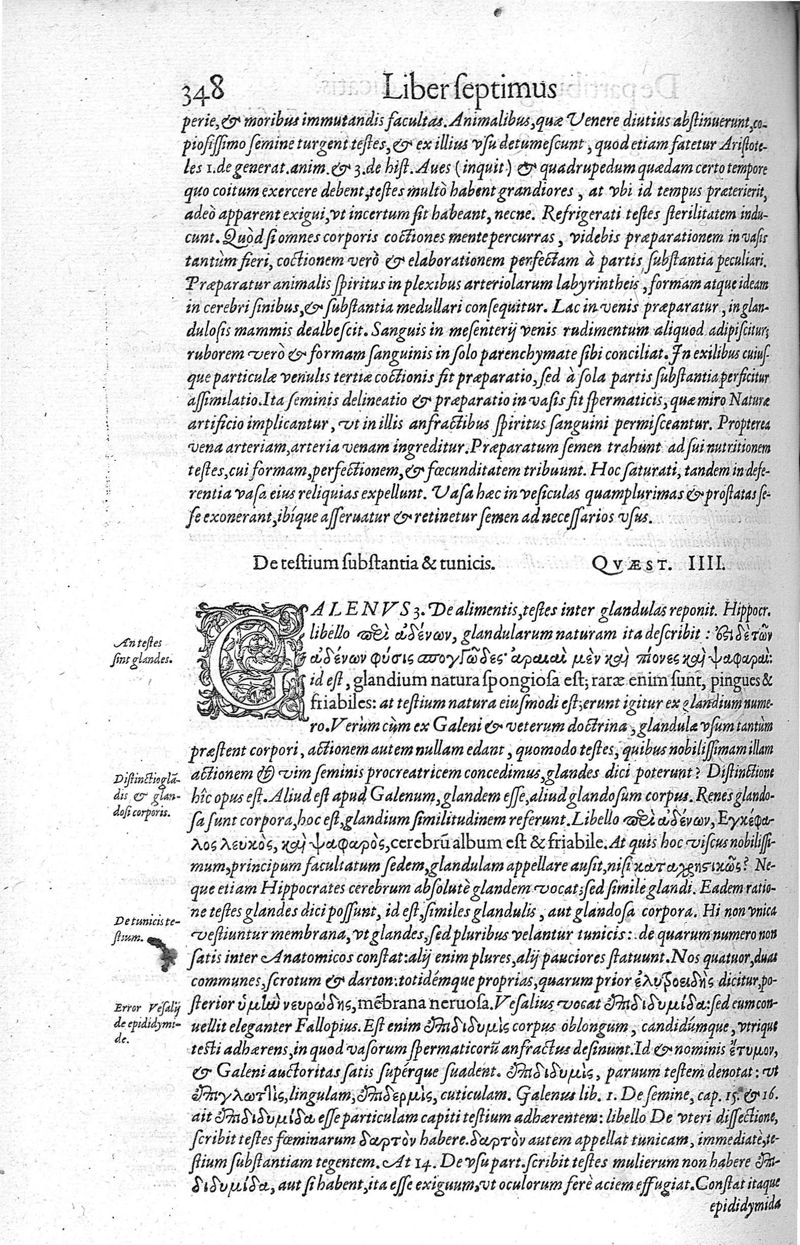 348 Liber septimus
perie, & moribus immutandis facultas. Animalibus, quæ Venere diutius abstinuerunt, co-
piosissimo semine turgent testes, & ex illius vsu detumescunt, quod etiam fatetur Aristote-
les 1. de generat. anim. & 3. de hist. Aues (inquit) & quadrupedum quædam certo tempore
quo coitum exercere debent, testes multò habent grandiores, at vbi id tempus præterierit,
adeò apparent exigui, vt incertum sit habeant, necne. Refrigerati testes sterilitatem indu-
cunt. Quòd si omnes corporis coctiones mente percurras, videbis præparationem in vasis
tantùm fieri, coctionem verò & elaborationem perfectam à partis substantia peculiari.
Præparatur animalis spiritus in plexibus arteriolarum labyrintheis, formam atque ideam
in cerebri sinibus, & substantia medullari consequitur. Lac in venis præparatur, in glan-
dulosis mammis dealbescit. Sanguis in mesenterij venis rudimentum aliquod adipiscitur,
ruborem verò & formam sanguinis in solo parenchymate sibi conciliat. In exilibus cuius-
que particulæ venulis tertiæ coctionis fit præparatio, sed à sola partis substantia perficitur
assimilatio. Ita seminis delineatio & præparatio in vasis fit spermaticis, quæ miro Naturæ
artificio implicantur, vt in illis anfractibus spiritus sanguini permisceantur. Propterea
vena arteriam, arteria venam ingreditur. Præparatum semen trahunt ad sui nutritionem
testes, cui formam, perfectionem, & fœcunditatem tribuunt. Hoc saturati, tandem in defe-
rentia vasa eius reliquias expellunt. Vasa hæc in vesiculas quamplurimas & prostatas se-
se exonerant, ibíque asseruatur & retinetur semen ad necessarios vsus.
De testium substantia & tunicis. QVÆST. IIII.
An testes
sint glandes.
GALENVS 3. De alimentis, testes inter glandulas reponit. Hippocr.
libello περὶ ἀδένων, glandularum naturam ita describit: ἡ δὲ τῶν
ἀδένων φύσις σπογγώδες· ἀραιαὶ μὲν καὶ πίονες καὶ ψαφαραί:
id est, glandium natura spongiosa est; raræ enim sunt, pingues &
friabiles: at testium natura eiusmodi est; erunt igitur ex glandium nume-
ro. Verùm cùm ex Galeni & veterum doctrina, glandulæ vsum tantùm
præstent corpori, actionem autem nullam edant, quomodo testes, quibus nobilissimam illam
Distinctio glã-
dis & glan-
dosi corporis.
actionem & vim seminis procreatricem concedimus, glandes dici poterunt? Distinctione
hîc opus est. Aliud est apud Galenum, glandem esse, aliud glandosum corpus. Renes glando-
sa sunt corpora, hoc est, glandium similitudinem referunt. Libello περὶ ἀδένων, Εγκέφα-
λος λευκὸς, καὶ ψαφαρὸς, cerebrũ album est & friabile. At quis hoc viscus nobilissi-
mum, principum facultatum sedem, glandulam appellare ausit, nisi καταχρηστικῶς? Ne-
que etiam Hippocrates cerebrum absolutè glandem vocat; sed simile glandi. Eadem ratio-
De tunicis te-
stium.
ne testes glandes dici possunt, id est, similes glandulis, aut glandosa corpora. Hi non vnica
vestiuntur membrana, vt glandes, sed pluribus velantur tunicis: de quarum numero non
satis inter Anatomicos constat: alij enim plures, alij pauciores statuunt. Nos quatuor, duas
communes, scrotum & darton: totidémque proprias, quarum prior ἐλυτροειδὴς dicitur, po-
Error Vesalij
de epididymi-
de.
sterior ὑμὴν νευρώδης, mẽbrana neruosa. Vesalius vocat ἐπιδιδυμίδα: sed eum con-
uellit eleganter Fallopius. Est enim ἐπιδιδυμὶς corpus oblongum, candidúmque, vtrique
testi adhærens, in quod vasorum spermaticorũ anfractus desinunt. Id & nominis ἔτυμον,
& Galeni auctoritas satis supérque suadent. ἐπιδιδυμὶς, paruum testem denotat: vt
ἐπιγλωττὶς, lingulam, ἐπιδερμὶς, cuticulam. Galenus lib. 1. De semine, cap. 15. & 16.
ait ἐπιδιδυμίδα esse particulam capiti testium adhærentem: libello De vteri dissectione,
scribit testes fœminarum δαρτὸν habere. δαρτὸν autem appellat tunicam, immediatè, te-
stium substantiam tegentem. At 14. De vsu part. scribit testes mulierum non habere ἐπι-
διδυμίδα, aut si habent, ita esse exiguum, vt oculorum ferè aciem effugiat. Constat itaque
epididymida